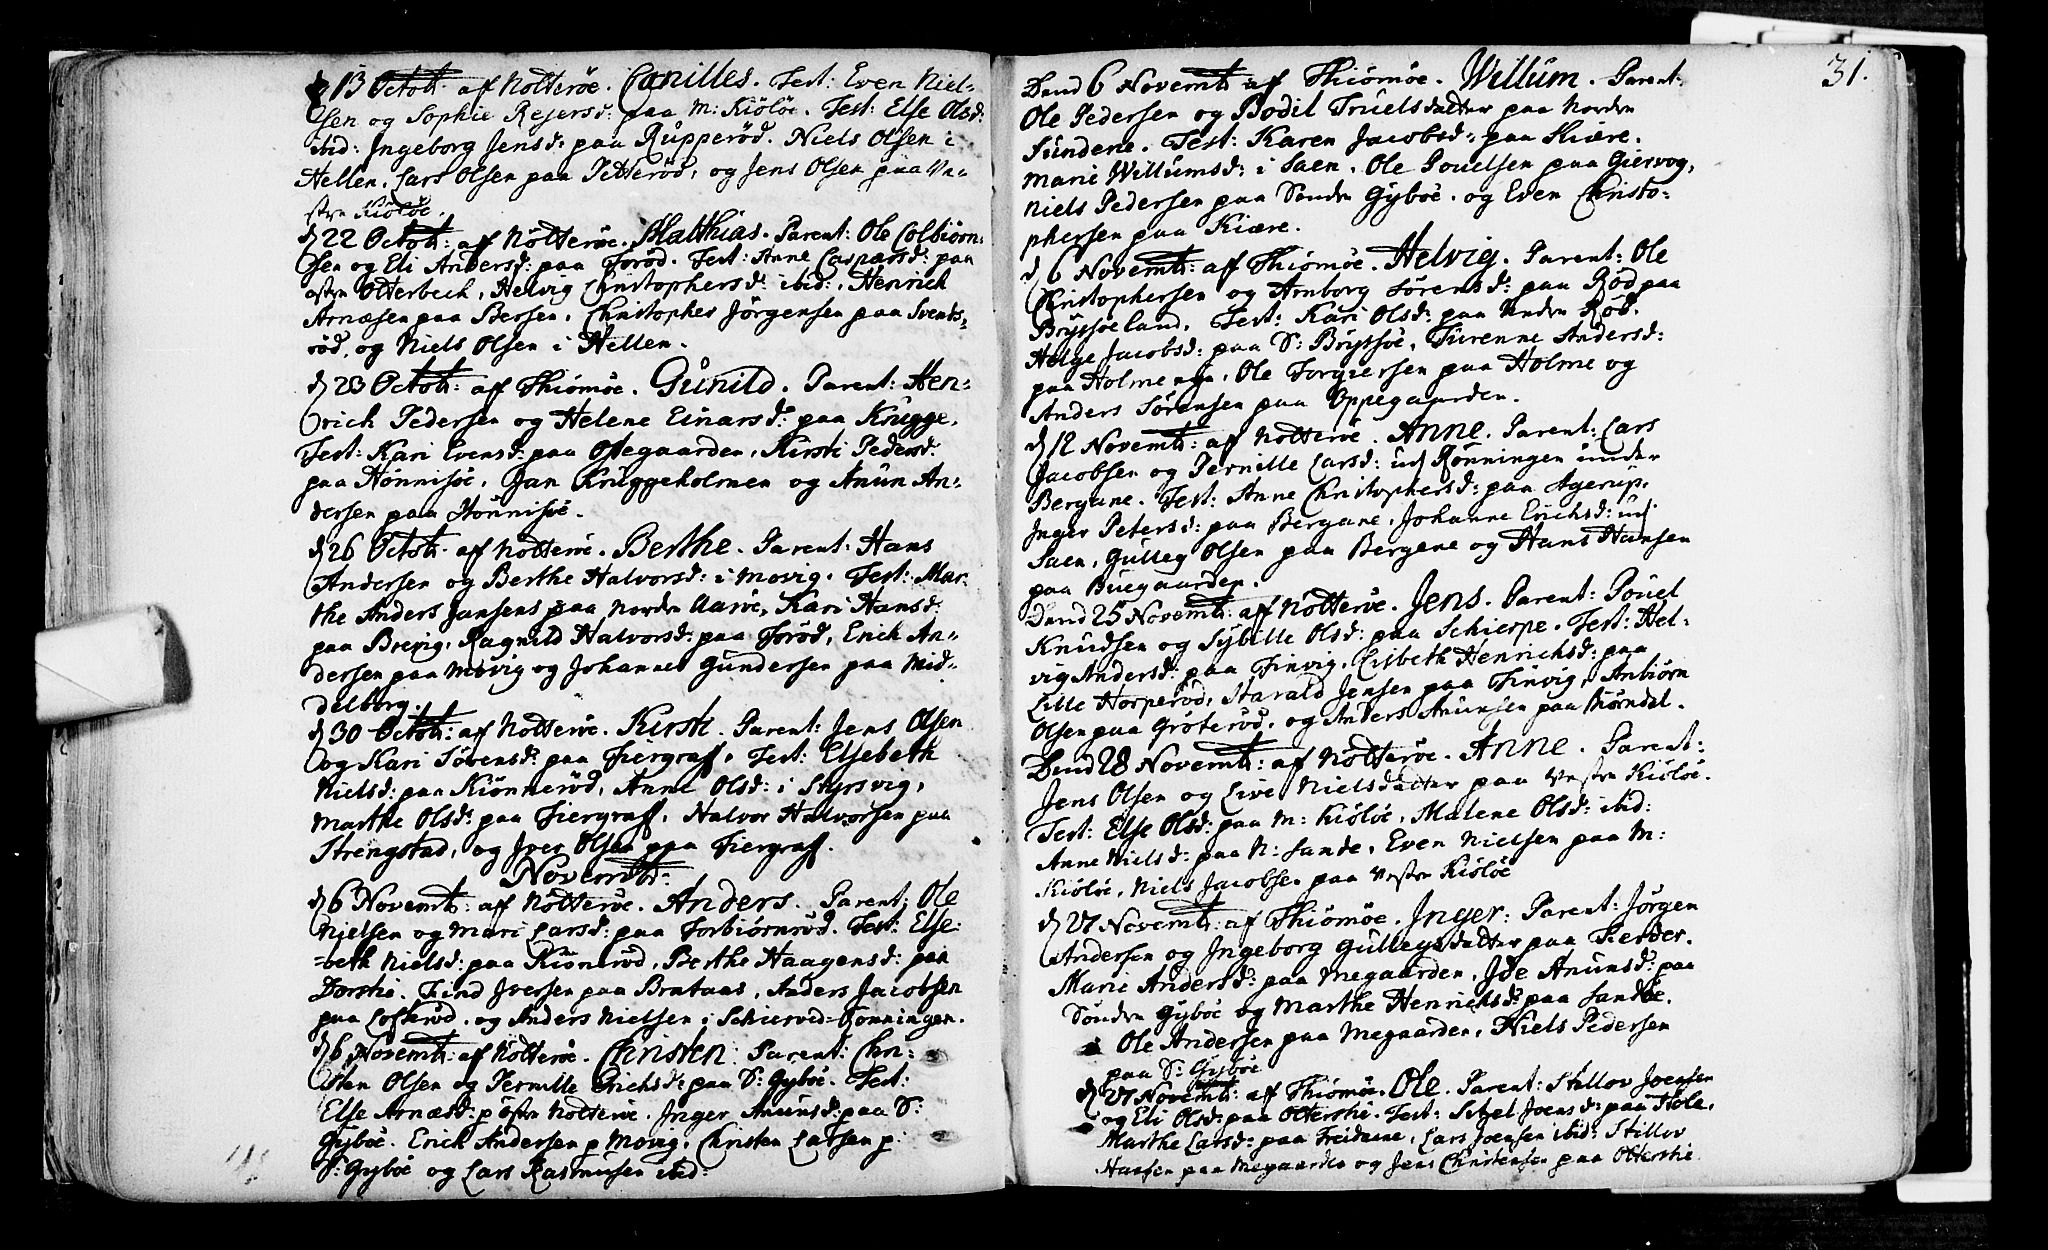 d 13 Octob: af Nötteröe. Canilles. Test: Even Niel-
sen og Sophie Rejersd: paa M: Kiölöe. Test: Else Olsd:
ibid: Ingeborg Jensd: paa Rupperöd. Niels Olsen i
Hellen. Lars Olsen paa Petteröd, og Jens Olsen paa Ve-
stre Kiölöe.
d 22 Octob: af Nötteröe. Matthias. Parent: Ole Colbiörn-
sen og Eli Andersd: paa Foröd. Test: Anne Caspersd: paa
östre Otterbech, Helvig Christophersd: ibid:, Henrich
Arnesen paa Bersen, Christopher Jörgensen paa Svends-
röd, og Niels Olsen i Hellen.
d 23 Octob: af Thiömöe. Gunild. Parent: Hen-
rich Pedersen og Helene Einarsd: paa Krugge.
Test: Kari Evensd: paa Opegaarden, Kirsti Pedersd:
paa Hönnisöe, Jan Kruggeholmen og Anun An-
dersen paa Hönnisöe.
d 26 Octob: af Nötteröe. Berthe. Parent: Hans
Andersen og Berthe Halvorsd: i Movig. Test: Mar-
the Anders Jansens paa Nordre Aaröe, Kari Hansd:
paa Brevig, Ragnild Halvorsd: paa Foröd, Erich An-
dersen paa Movig og Johannes Gundersen paa Mid-
delborg.
d 30 Octob: af Nötteröe. Kirsti. Parent: Jens Olsen
og Kari Sörensd: paa Fiergraf, Test: Elsebeth
Nielsd: paa Kiönneröd, Anne Olsd: i Styrsvig,
Marthe Olsd: paa Fiergraf, Halvor Halvorsen paa
Strengstad, og Iver Olsen paa Fiergraf.
Novemb:
d 6 Novemb: af Nötteröe. Anders. Parent: Ole
Nielsen og Mari Larsd: paa Torbiörnröd. Test: Else-
beth Nielsd: paa Kiöneröd, Berthe Haagensd: paa
Dorshi. Find Iversen paa Brataas, Anders Jacobsen
paa Lofteröd. og Anders Nielsen i Schierved-Rönningen.
d 6 Novemb: af Nötteröe. Christen. Parent: Chri-
sten Olsen og Pernille Erichsd: paa S: Gyböe. Test:
Else Arnesd: p östre Nötteröe. Inger Anunsd: paa S:
Gyböe. Erich Andersen p Movig, Christen Larsen p
S: Gyböe og Lars Rasmusen ibid:
31.
Dend 6 Novemb: af Thiömöe. Willum. Parent:
Ole Pedersen og Bodil Truelsdatter paa Nordre
Sundene. Test: Karen Jacobsd: paa Kiære.
Marie Willumsd: i Saen. Ole Pouelsen paa Giervog,
Niels Pedersen paa Söndre Gyböe. og Even Christo-
phersen paa Kiære.
d 6 Novemb: af Thiömöe. Helvig. Parent: Ole
Christophersen og Arnborg Sörensd: paa Röd paa
Brytsöeland. Test: Kari Olsd: paa Nedre Röd.
Helge Jacobsd: paa S: Brytsöe, Turenne Andersd:
paa Holmen, Ole Torgiersen paa Holme og
Anders Sörensen paa Oppegaarden.
d 12 Novemb: af Nötteröe. Anne. Parent: Lars
Jacobsen og Pernille Larsd: ud Rönningen under
Bergane. Test: Anne Christophersd: paa Agerup.
Inger Petersd: paa Bergane, Johanne Erichsd: ud
Saen, Gulleg Olsen paa Bergene og Hans Hansen
paa Buegaarden.
Dend 25 Novemb: af Nötteröe. Jens. Parent: Pouel
Knudsen og Sybille Olsd: paa Schierpe. Test: Hel-
vig Andersd: paa Finvig, Lisbeth Henrichsd: paa
Lille Horperöd, Harald Jensen paa Finvig, Anbiörn
Olsen paa Gröteröd, og Anders Anunsen paa Börndal.
Dend 28 Novemb: af Nötteröe. Anne. Parent:
Jens Olsen og Live Nielsdatter paa Vestre Kiölöe.
Test: Else Olsd: paa M: Kiölöe, Malene Olsd: ibid:
Anne Nielsd: paa N: Sande, Even Nielsen paa M:
Kiölöe, Niels Jacobsen paa Vestre Kiölöe
d 27 Novemb: af Thiömöe. Inger: Parent: Jörgen
Andersen og Ingeborg Gullegsdatter paa Fierder.
Marie Andersd: paa Megaarden, Ide Anunsd: paa
Söndre Gyböe og Marthe Henrichsd: paa Sandöe.
Ole Andersen paa Megaarden, Niels Pedersen
paa S: Gyböe
d 27 Novemb: af Thiömöe. Ole. Parent: Stillov Joensen
og Eli Olsd: paa Oltershi. Test: Sibel Joensd: paa Hole,
Marthe Larsd: paa Treidene, Lars Joensen ibid: Stillov
Hansen paa Megaarden og Jens Christensen paa Oltershi